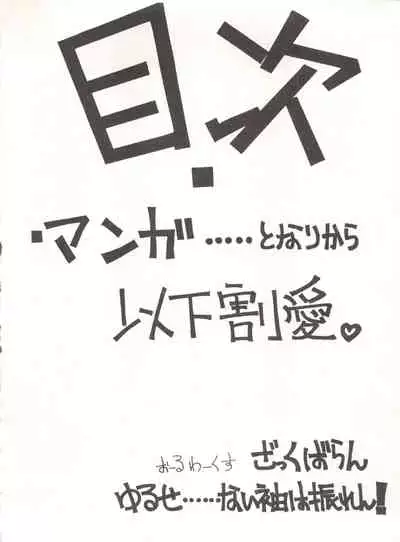 目次
・マンガ……となりから
以下割愛♡
おーるわーくす ざっくばらん
ゆるせ……ない袖は振れん!!